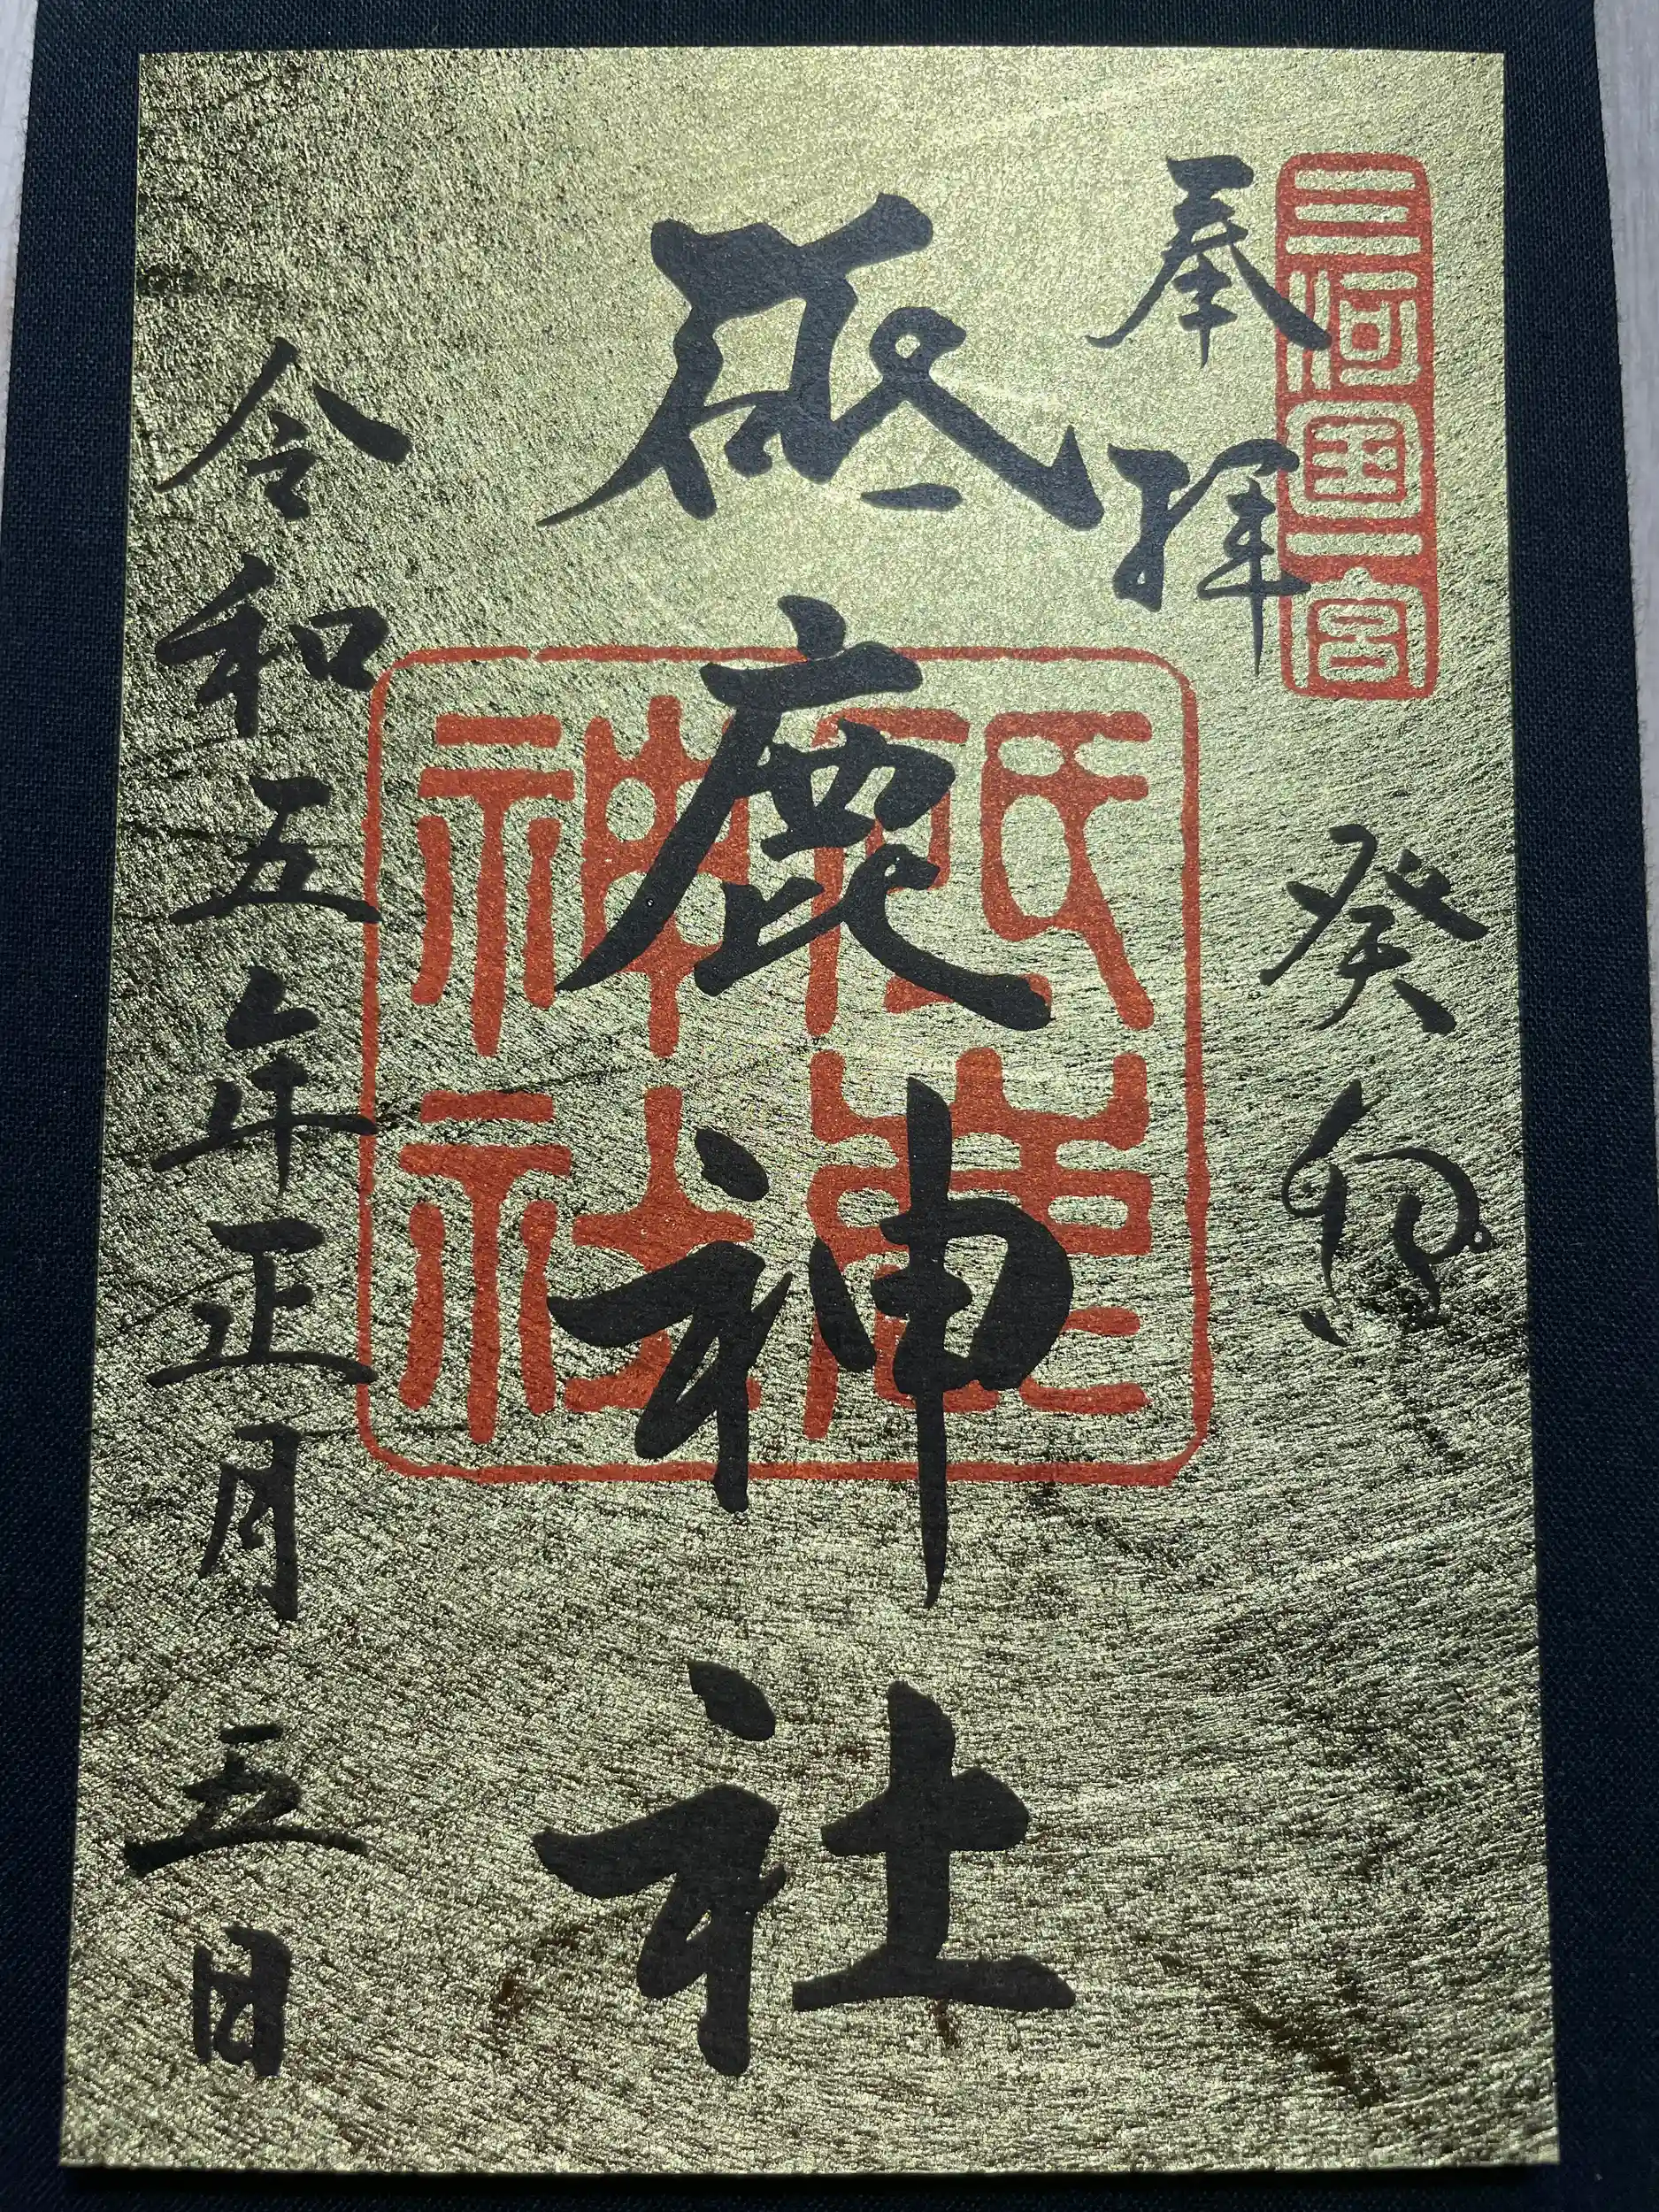 三河国一宮
奉拝
癸卯
砥鹿神社
砥鹿
神社
令和五年正月三日